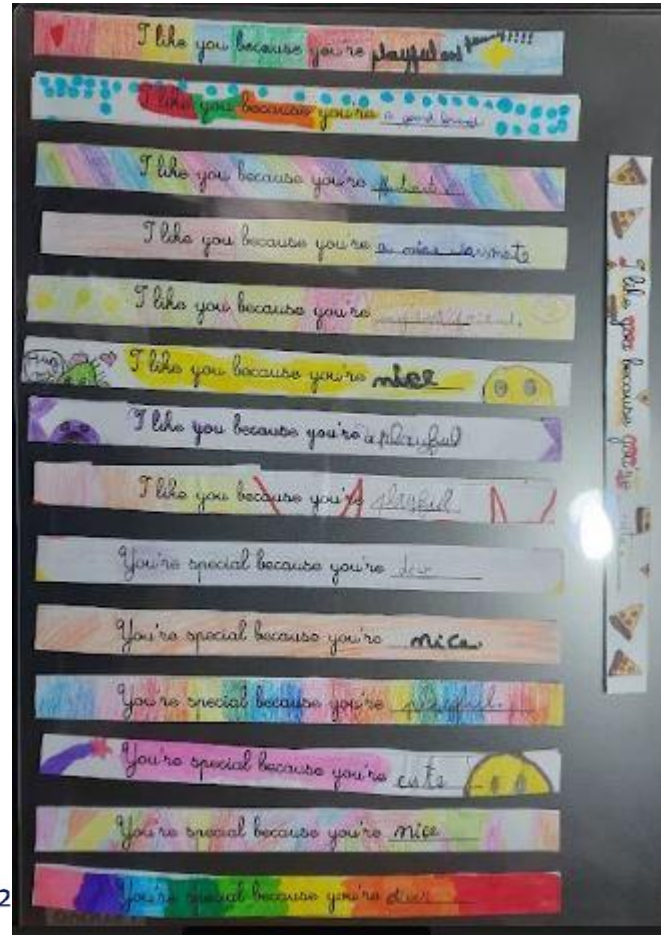 I like you because you're playful and funny!!!!
I like you because you're a good friend
I like you because you're
I like you because you're a nice
I like you because you're
I like you because you're nice
I like you because you're a playful
I like you because you're playful
You're special because you're
You're special because you're nice
You're special because you're playful.
You're special because you're cute
You're special because you're nice
You're special because you're
I like you because you're
2